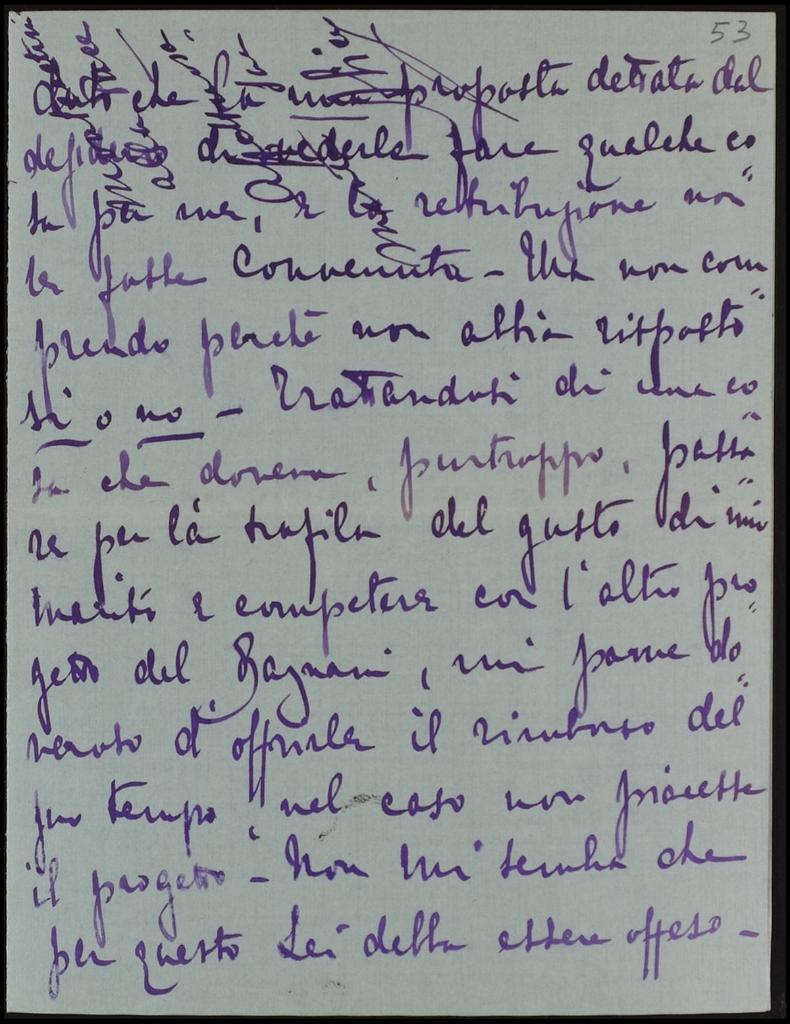 53
dato che la mia proposta dettata dal
desiderio di vederle fare qualche co
sa per me, e la retribuzione non"
le fosse convenuta - Ma non com
prendo perché non abbia risposto"
si o no - Trattandosi di una co
sa che doveva, purtroppo, passa"
re per la trafila del gusto di mio
marito e competere con l'altro pro
getto del Bagnani, mi parve do"
veroso d'offrirle il rimborso del"
suo tempo, nel caso non piacesse
il progetto - Non mi sembra che
per questo Lei debba essere offeso -